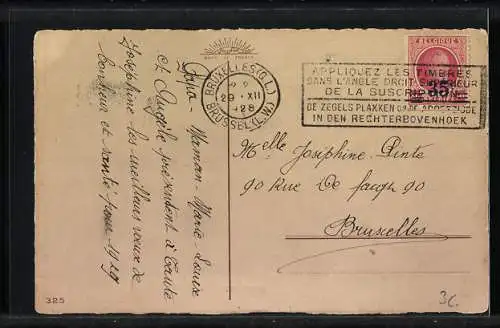 BELGIQUE
35
BRUXELLES (G.L.)
29 XII
1928
BRUSSEL (L.W.)
APPLIQUEZ LES TIMBRES
DANS L'ANGLE DROIT SUPERIEUR
DE LA SUSCRIPTION
DE ZEGELS PLAKKEN OP DE ADRESZIJDE
IN DEN RECHTERBOVENHOEK
Maman - Marie-Louise
et Angèle présentent à tante
Joséphine les meilleurs vœux de
bonheur et santé pour 1929
Melle Joséphine Pinte
90 Rue de 90
Bruxelles
325
3c